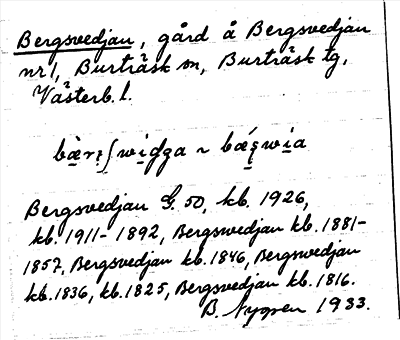 Bergsvedjan, gård å Bergsvedjan
nr 1, Burträsk sn, Burträsk tg,
Västerb. l.
Bergsvedjan G. 50, kb. 1926,
kb. 1911-1892, Bergswedjan kb. 1881-
1857, Bergsvedjan kb. 1846, Bergswedjan
kb. 1836, kb. 1825, Bergsvedjan kb. 1816.
B. Nygren 1933.